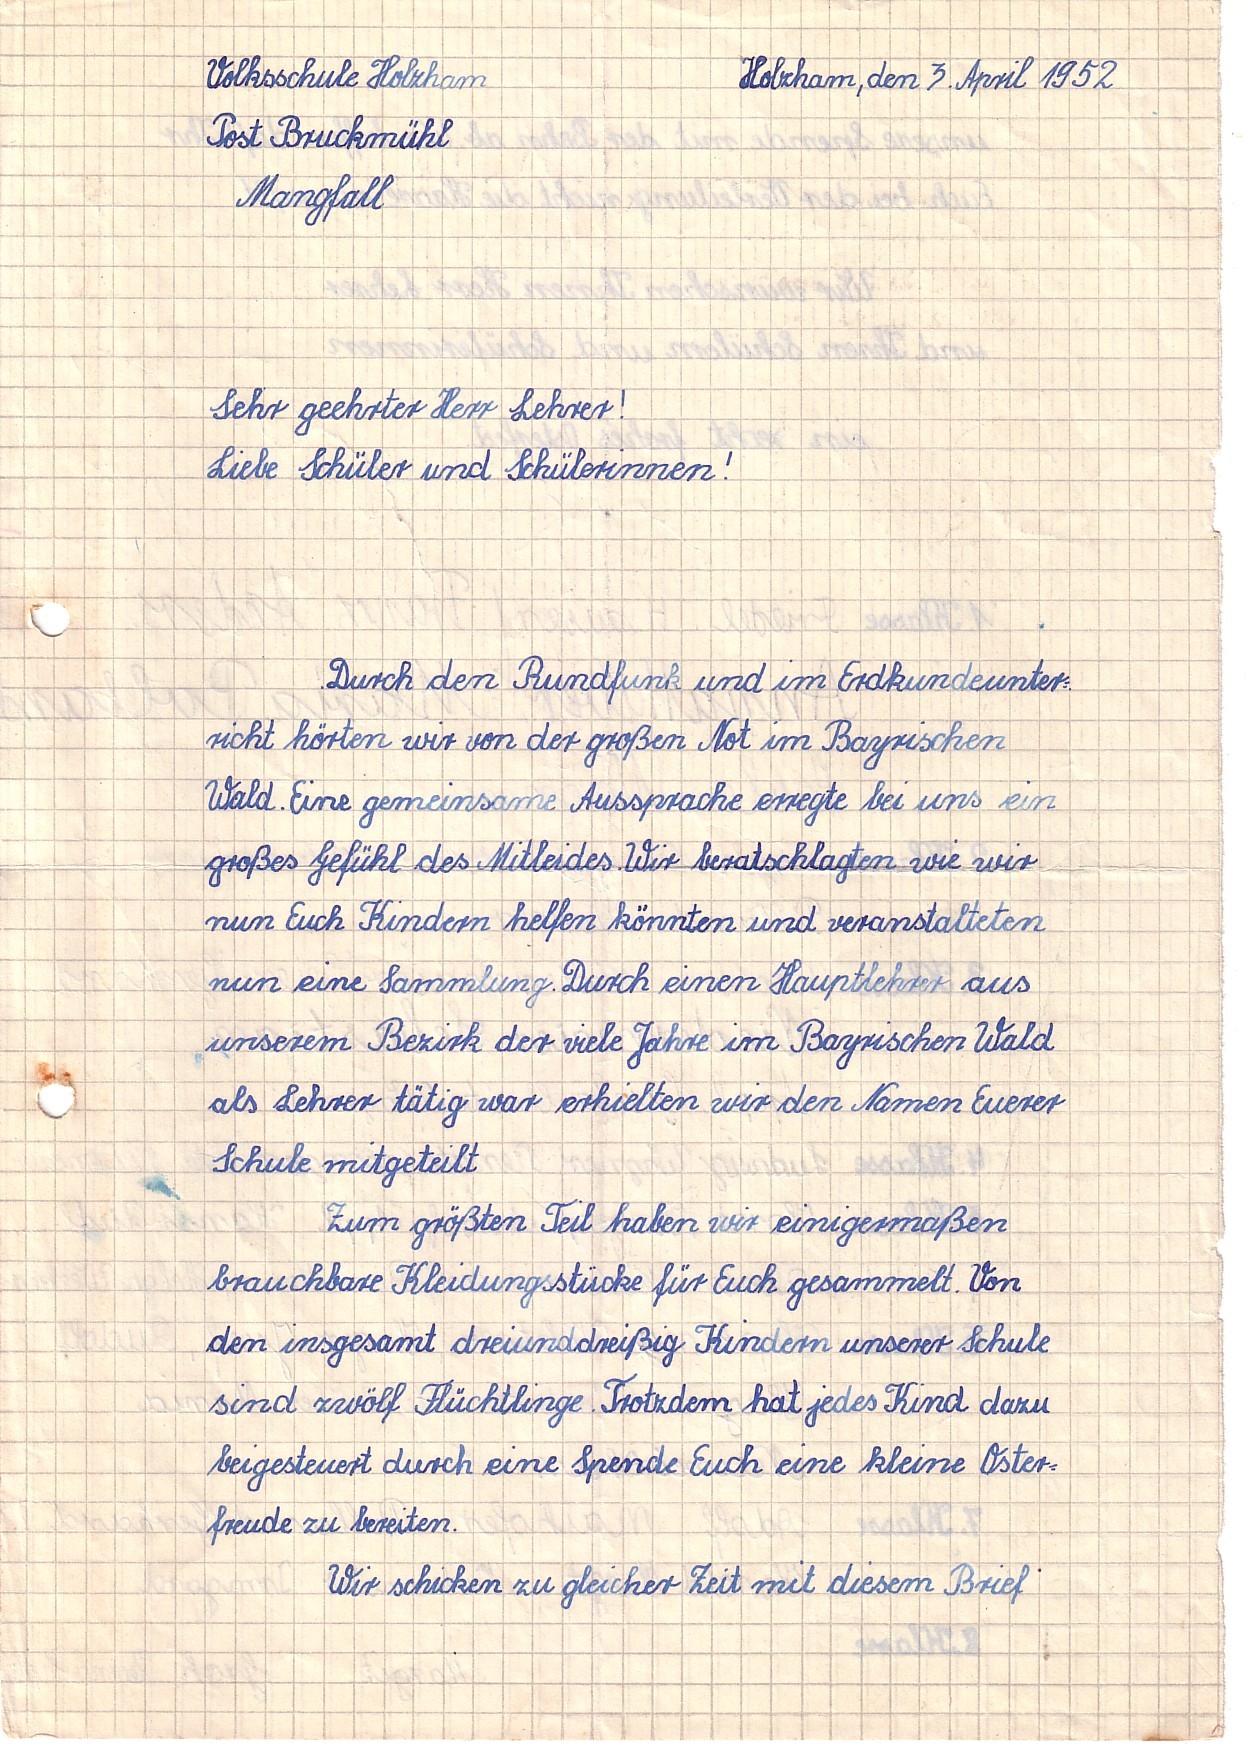 Volksschule Holzham
Holzham, den 3. April 1952
Post Bruckmühl
Mangfall
Sehr geehrter Herr Lehrer!
Liebe Schüler und Schülerinnen!
Durch den Rundfunk und im Erdkundeunter=
richt hörten wir von der großen Not im Bayrischen
Wald. Eine gemeinsame Aussprache erregte bei uns ein
großes Gefühl des Mitleides. Wir beratschlagten wie wir
nun Euch Kindern helfen könnten und veranstalteten
nun eine Sammlung. Durch einen Hauptlehrer aus
unserem Bezirk der viele Jahre im Bayrischen Wald
als Lehrer tätig war erhielten wir den Namen Euerer
Schule mitgeteilt
Zum größten Teil haben wir einigermaßen
brauchbare Kleidungsstücke für Euch gesammelt. Von
den insgesamt dreiunddreißig Kindern unserer Schule
sind zwölf Flüchtlinge. Trotzdem hat jedes Kind dazu
beigesteuert durch eine Spende Euch eine kleine Oster=
freude zu bereiten.
Wir schicken zu gleicher Zeit mit diesem Brief